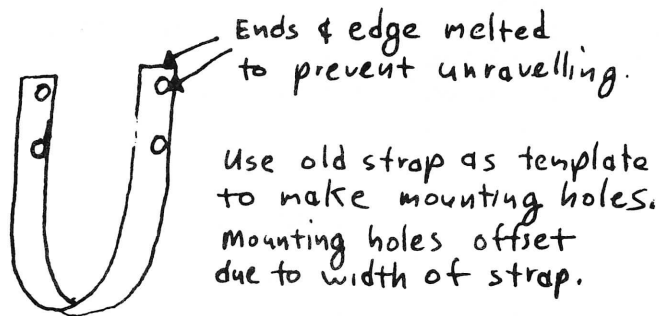 Ends & edge melted
to prevent unravelling.
Use old strap as template
to make mounting holes.
Mounting holes offset
due to width of strap.